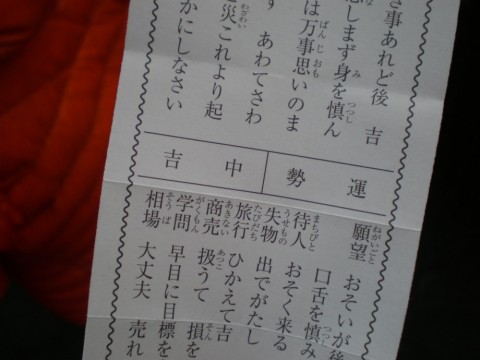 き事あれど後 吉
しまず身を慎ん
は万事思いのま
あわてさわ
災これより起
かにしなさい
運勢
中吉
願望 おそいが後
口舌を慎み
待人 おそく来る
失物 出でがたし
旅行 ひかえて吉
商売 扱うて 損を
学問 早目に目標を
相場 大丈夫 売れ